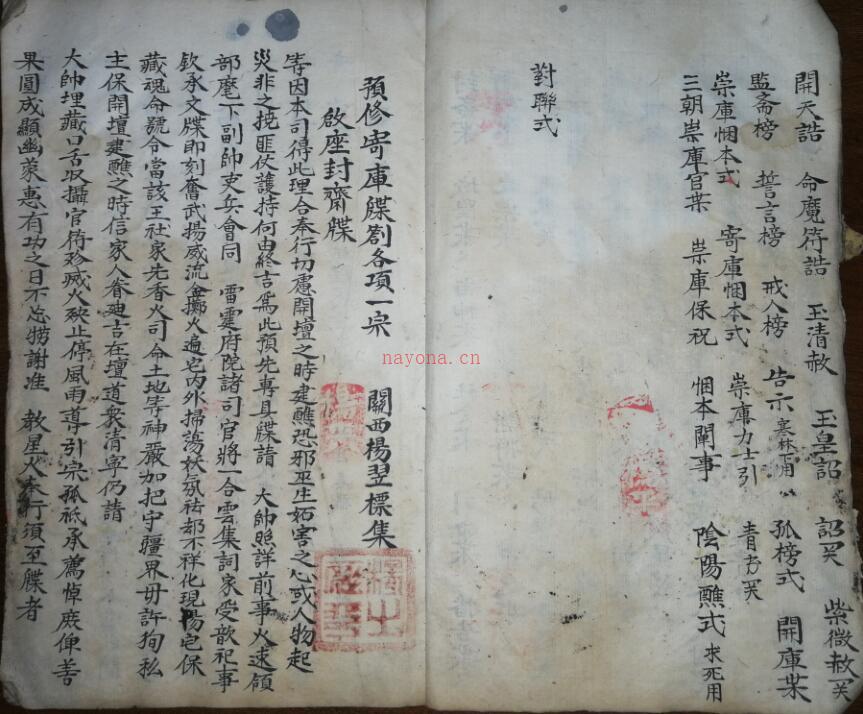 開天誥 命魔符誥 玉清赦 玉皇詔 詔關 紫微赦關
監斋榜 誓言榜 戒人榜 告示 寒林用 孤榜式 開庫枼
崇庫悃本式 寄庫悃本式 崇庫力士引 青玄關
三朝崇庫官枼 崇庫保祝 悃本闡事 陰陽醮式 求死用
對聯式
預修寄庫牒劄各項一宗 關西楊翌標集
啟座封齋牒
等因本司得此理合奉行切慮開壇之時建醮恐邪巫生妬害之心或人物起
災非之撓匪仗護持何由終吉爲此預先專具牒請 大帥照詳前事火速領
部麾下副帥吏兵會同 雷霆府院諸司官將一合雲集詞家受歆祀事
欽承文牒即刻奮武揚威流金擲火遍宅內外掃蕩妖氛祛却不祥化現陽宅保
藏魂命號令當該王社家先香火司命土地等神嚴加把守疆界毋許狥私
主保開壇建醮之時信家人眷廸吉在壇道衆清寧仍請
大帥埋藏口舌收攝官符殄滅火殃止停風雨導引宗孤祇承薦悼庶俾善
果圓成顯幽蒙惠有功之日不忘犒謝准 教星火奉行須至牒者
nayona.cn